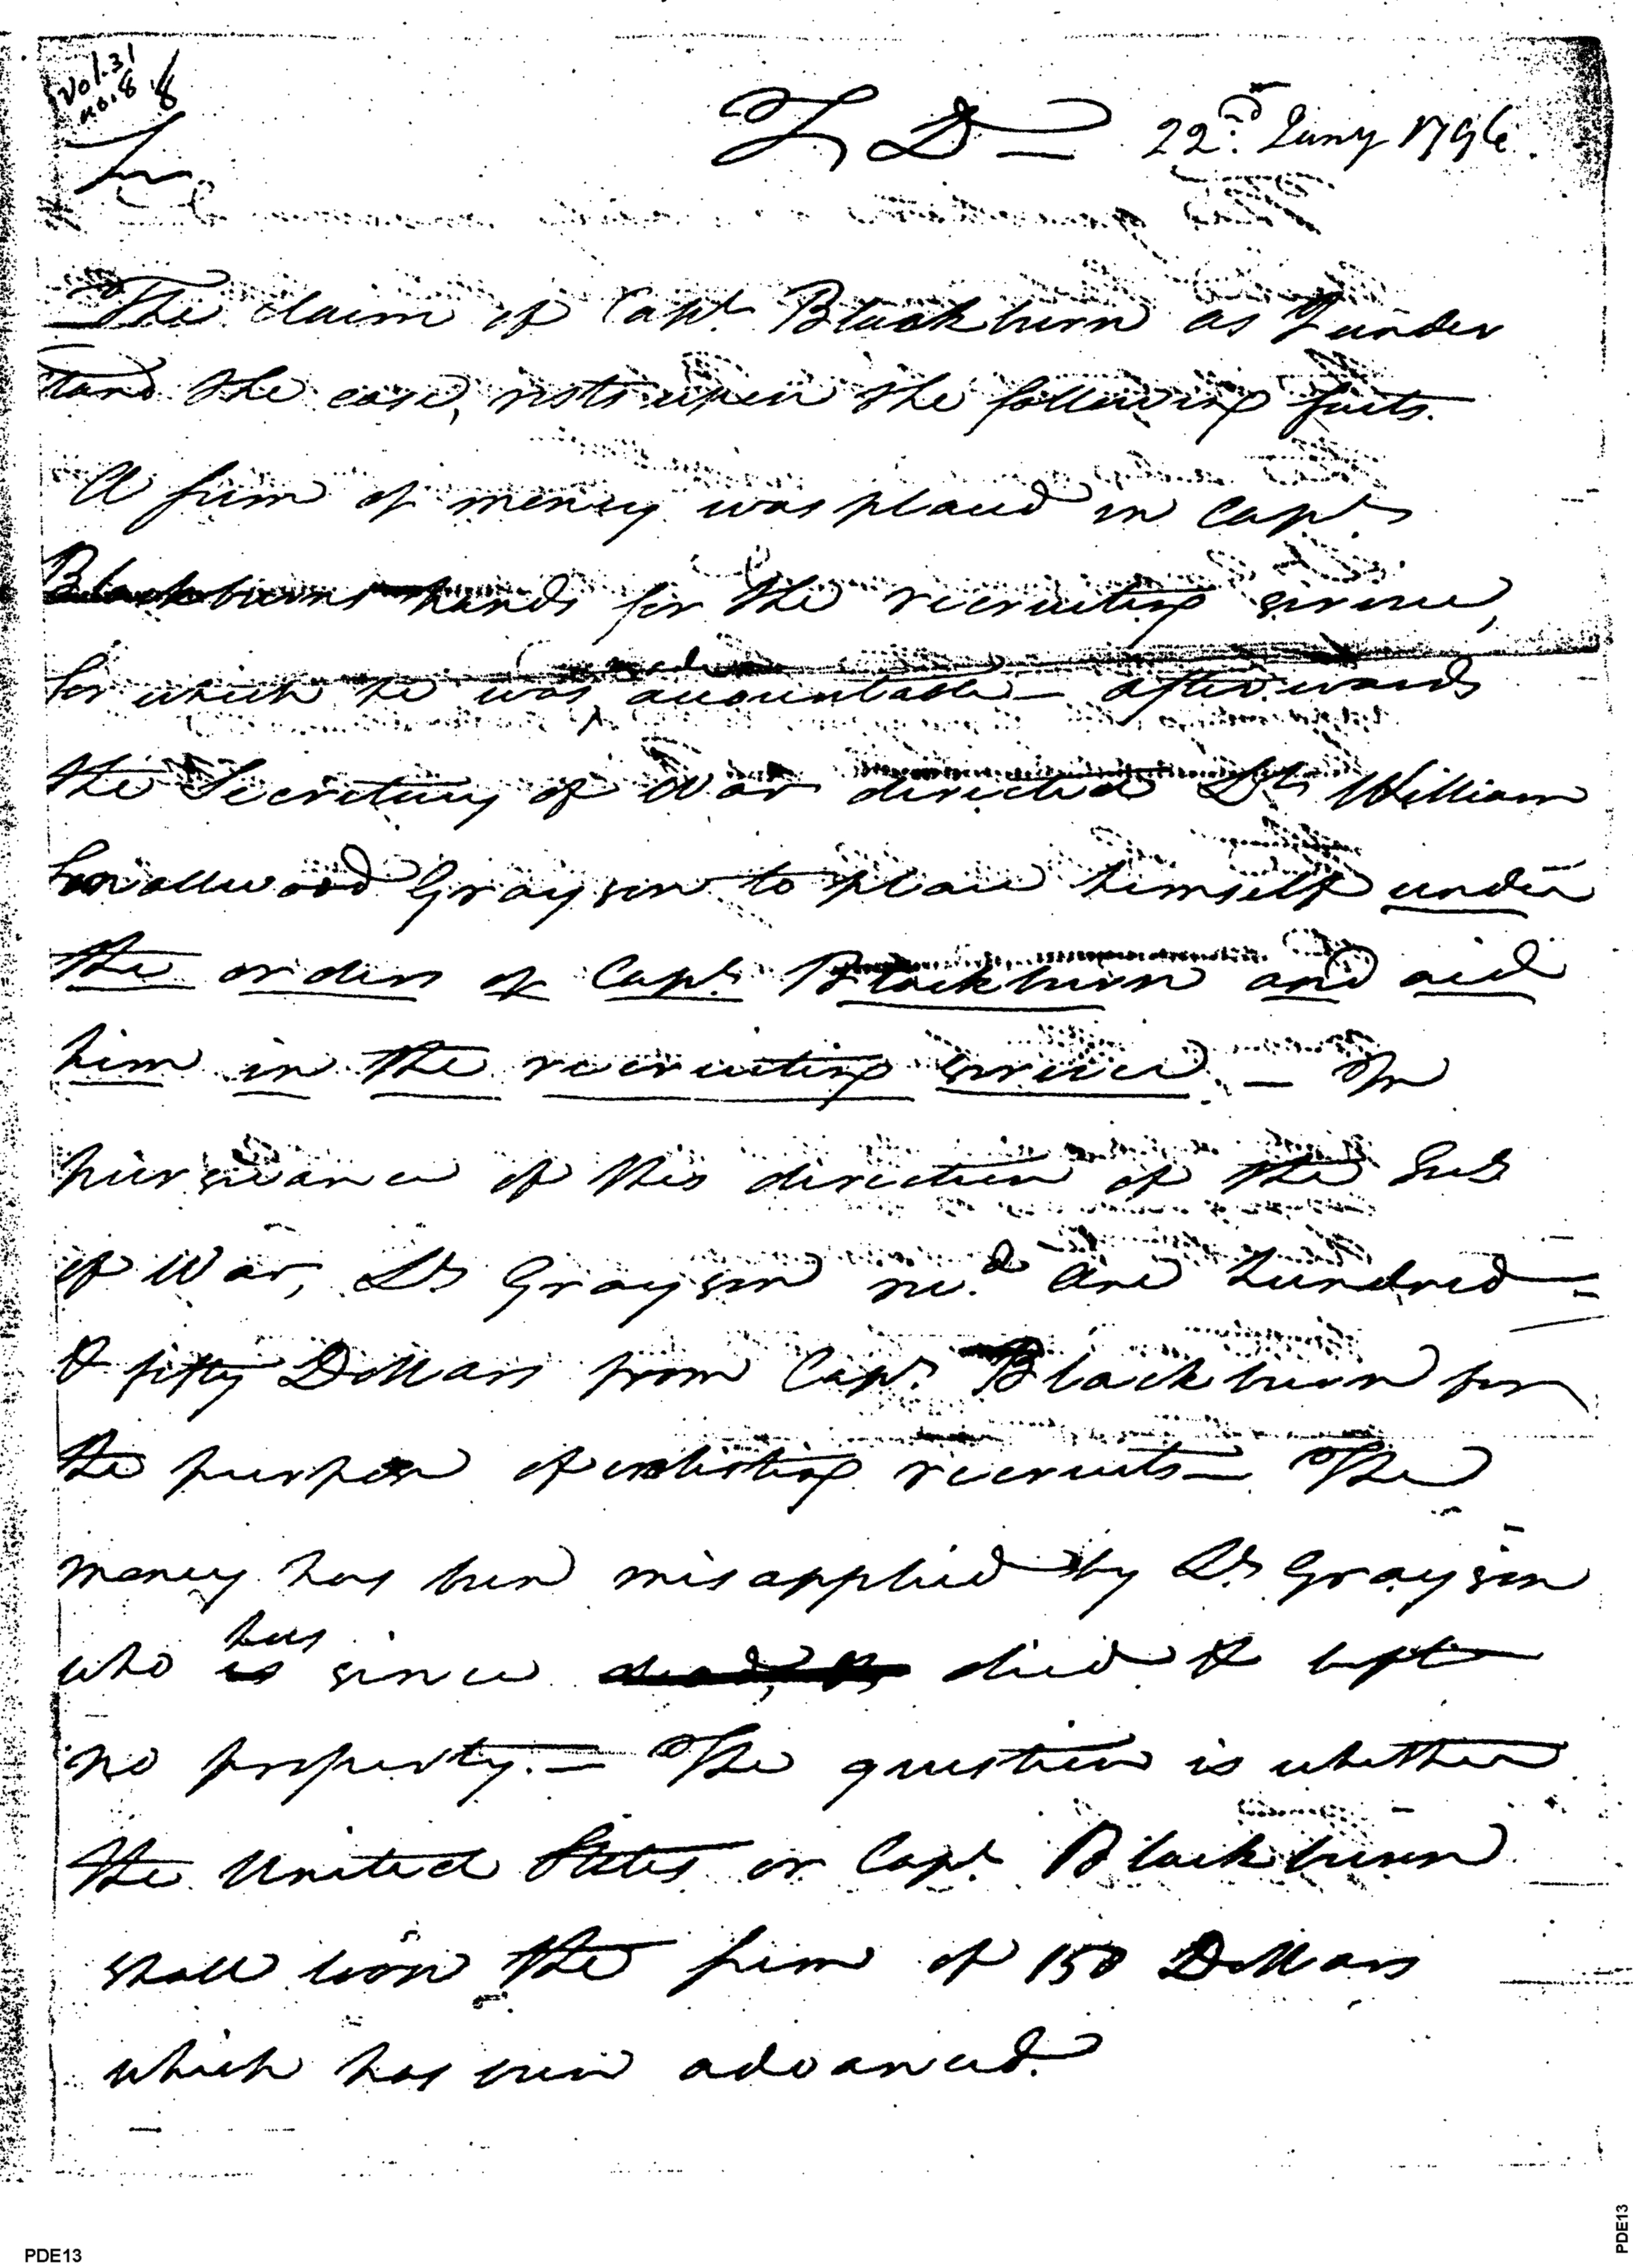 Vol. 31
no. 8
8
T D — 22.d Jany 1796.
Sir,
The claim of Capt. Blackburn as I under
stand the case, rests upon the following facts.
A sum of money was placed in Capt.
Blackburns hands for the recruiting service,
for which he was made accountable — afterwards
the Secretary of War directed Lt. William
Smallwood Grayson to place himself under
the orders of Capt. Blackburn and aid
him in the recruiting service. — In
pursuance of this direction of the Sec
of War, Lt. Grayson rec.d one hundred
& fifty Dollars from Capt. Blackburn for
the purpose of enlisting recruits — The
money has been misapplied by Lt. Grayson
has
who is since died & left
no property. — The question is whether
the United States or Capt. Blackburn
shall loose the sum of 150 Dollars
which has been advanced.
PDE13
PDE13